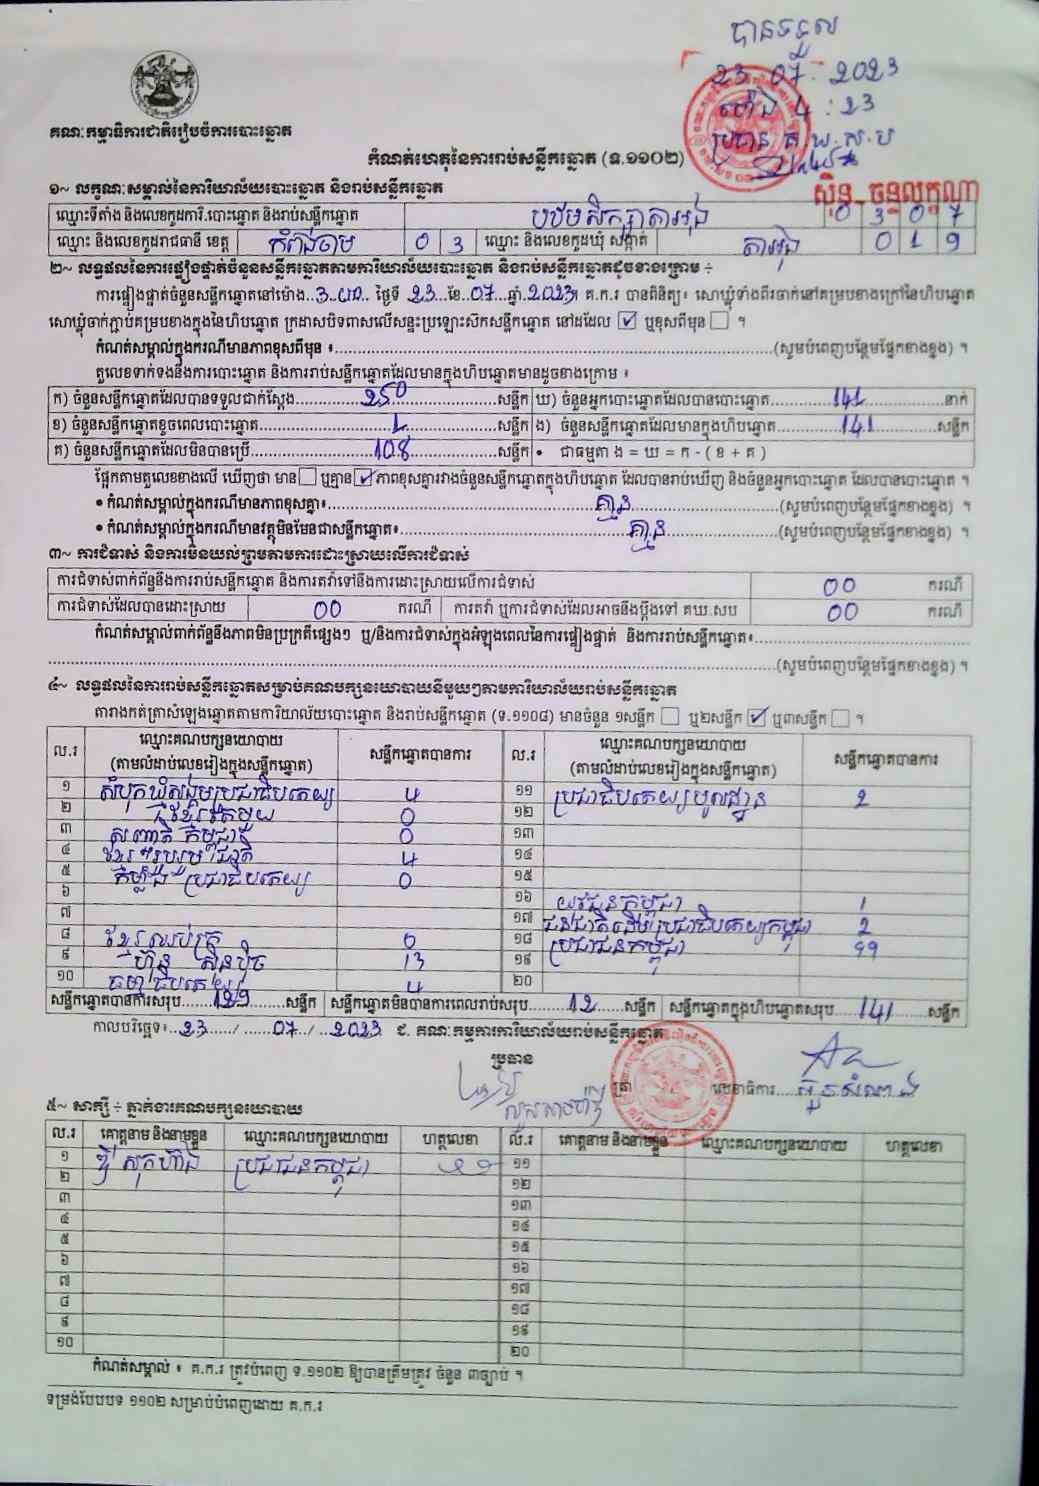 បានទទួល
23 07 . 2023
ម៉ោង 4 : 23
ប្រធាន គ.ឃ.ស.ប
ស៊ិន ចន្ទលក្ខណា
គណៈកម្មាធិការជាតិរៀបចំការបោះឆ្នោត
កំណត់ហេតុនៃការរាប់សន្លឹកឆ្នោត (ទ.១១០២)
១~ លក្ខណៈសម្គាល់នៃការិយាល័យបោះឆ្នោត និងរាប់សន្លឹកឆ្នោត
ឈ្មោះទីតាំង និងលេខកូដការិ.បោះឆ្នោត និងរាប់សន្លឹកឆ្នោត បឋមសិក្សាតាអុង 0 3 0 7
ឈ្មោះ និងលេខកូដរាជធានី ខេត្ត កំពង់ចាម 0 3 ឈ្មោះ និងលេខកូដឃុំ សង្កាត់ តាអុង 0 1 9
២~ លទ្ធផលនៃការផ្ទៀងផ្ទាត់ចំនួនសន្លឹកឆ្នោតតាមការិយាល័យបោះឆ្នោត និងរាប់សន្លឹកឆ្នោតដូចខាងក្រោម ÷
ការផ្ទៀងផ្ទាត់ចំនួនសន្លឹកឆ្នោតនៅម៉ោង..3.យប.. ថ្ងៃទី 23 ខែ.07 ឆ្នាំ.2023។ គ.ក.រ បានពិនិត្យ៖ សោឃ្លុំទាំងពីរចាក់នៅគម្របខាងក្រៅនៃហិបឆ្នោត
សោឃ្លុំចាក់ភ្ជាប់គម្របខាងក្នុងនៃហិបឆ្នោត ក្រដាសបិទពាសលើសន្ទះប្រឡោះសិកសន្លឹកឆ្នោត នៅដដែល ☑ ឬខុសពីមុន ☐ ។
កំណត់សម្គាល់ក្នុងករណីមានភាពខុសពីមុន ៖ (សូមបំពេញបន្ថែមផ្នែកខាងខ្នង) ។
តួលេខទាក់ទងនឹងការបោះឆ្នោត និងការរាប់សន្លឹកឆ្នោតដែលមានក្នុងហិបឆ្នោតមានដូចខាងក្រោម ៖
ក) ចំនួនសន្លឹកឆ្នោតដែលបានទទួលជាក់ស្តែង 250 សន្លឹក ឃ) ចំនួនអ្នកបោះឆ្នោតដែលបានបោះឆ្នោត 141 នាក់
ខ) ចំនួនសន្លឹកឆ្នោតខូចពេលបោះឆ្នោត 1 សន្លឹក ង) ចំនួនសន្លឹកឆ្នោតដែលមានក្នុងហិបឆ្នោត 141 សន្លឹក
គ) ចំនួនសន្លឹកឆ្នោតដែលមិនបានប្រើ 108 សន្លឹក • ជាធម្មតា ង = ឃ = ក - ( ខ + គ )
ផ្អែកតាមតួលេខខាងលើ ឃើញថា មាន ☐ ឬគ្មាន ☑ ភាពខុសគ្នារវាងចំនួនសន្លឹកឆ្នោតក្នុងហិបឆ្នោត ដែលបានរាប់ឃើញ និងចំនួនអ្នកបោះឆ្នោត ដែលបានបោះឆ្នោត ។
• កំណត់សម្គាល់ក្នុងករណីមានភាពខុសគ្នា៖ គ្មាន (សូមបំពេញបន្ថែមផ្នែកខាងខ្នង) ។
• កំណត់សម្គាល់ក្នុងករណីមានវត្ថុមិនមែនជាសន្លឹកឆ្នោត៖ គ្មាន (សូមបំពេញបន្ថែមផ្នែកខាងខ្នង) ។
៣~ ការជំទាស់ និងការមិនយល់ព្រមតាមការដោះស្រាយលើការជំទាស់
ការជំទាស់ពាក់ព័ន្ធនឹងការរាប់សន្លឹកឆ្នោត និងការតវ៉ាទៅនឹងការដោះស្រាយលើការជំទាស់ 00 ករណី
ការជំទាស់ដែលបានដោះស្រាយ 00 ករណី ការតវ៉ា ឬការជំទាស់ដែលអាចនឹងប្តឹងទៅ គឃ.សប 00 ករណី
កំណត់សម្គាល់ពាក់ព័ន្ធនឹងភាពមិនប្រក្រតីផ្សេងៗ ឬ/និងការជំទាស់ក្នុងអំឡុងពេលនៃការផ្ទៀងផ្ទាត់ និងការរាប់សន្លឹកឆ្នោត៖
(សូមបំពេញបន្ថែមផ្នែកខាងខ្នង) ។
៤~ លទ្ធផលនៃការរាប់សន្លឹកឆ្នោតសម្រាប់គណបក្សនយោបាយនីមួយៗតាមការិយាល័យរាប់សន្លឹកឆ្នោត
តារាងកត់ត្រាសំឡេងឆ្នោតតាមការិយាល័យបោះឆ្នោត និងរាប់សន្លឹកឆ្នោត (ទ.១១០៨) មានចំនួន ១សន្លឹក ☐ ឬ២សន្លឹក ☑ ឬ៣សន្លឹក ☐ ។
ល.រ ឈ្មោះគណបក្សនយោបាយ (តាមលំដាប់លេខរៀងក្នុងសន្លឹកឆ្នោត) សន្លឹកឆ្នោតបានការ ល.រ ឈ្មោះគណបក្សនយោបាយ (តាមលំដាប់លេខរៀងក្នុងសន្លឹកឆ្នោត) សន្លឹកឆ្នោតបានការ
១ សំបុកឃ្មុំសង្គមប្រជាធិបតេយ្យ 4 ១១ ប្រជាធិបតេយ្យមូលដ្ឋាន 2
២ ខ្មែរតែមួយ 0 ១២
៣ សញ្ជាតិកម្ពុជា 0 ១៣
៤ ខ្មែររួបរួមជាតិ 4 ១៤
៥ កម្លាំងប្រជាធិបតេយ្យ 0 ១៥
៦ ១៦ យុវជនកម្ពុជា 1
៧ ១៧ ជនជាតិដើមប្រជាធិបតេយ្យកម្ពុជា 2
៨ ខ្មែរឈប់ក្រ 0 ១៨ ប្រជាជនកម្ពុជា 99
៩ ហ៊្វុនស៊ិនប៉ិច 13 ១៩
១០ ធម្មាធិបតេយ្យ 4 ២០
សន្លឹកឆ្នោតបានការសរុប 129 សន្លឹក សន្លឹកឆ្នោតមិនបានការពេលរាប់សរុប 12 សន្លឹក សន្លឹកឆ្នោតក្នុងហិបឆ្នោតសរុប 141 សន្លឹក
កាលបរិច្ឆេទ៖ 23 / 07 / 2023 ជ. គណៈកម្មការការិយាល័យរាប់សន្លឹកឆ្នោត
ប្រធាន ត្រា លេខាធិការ
៥~ សាក្សី ÷ ភ្នាក់ងារគណបក្សនយោបាយ
ល.រ គោត្តនាម និងនាមខ្លួន ឈ្មោះគណបក្សនយោបាយ ហត្ថលេខា ល.រ គោត្តនាម និងនាមខ្លួន ឈ្មោះគណបក្សនយោបាយ ហត្ថលេខា
១ ឌី សុកហ៊ាង ប្រជាជនកម្ពុជា ១១
២ ១២
៣ ១៣
៤ ១៤
៥ ១៥
៦ ១៦
៧ ១៧
៨ ១៨
៩ ១៩
១០ ២០
កំណត់សម្គាល់ ៖ គ.ក.រ ត្រូវបំពេញ ទ.១១០២ ឱ្យបានត្រឹមត្រូវ ចំនួន ៣ច្បាប់ ។
ទម្រង់បែបបទ ១១០២ សម្រាប់បំពេញដោយ គ.ក.រ